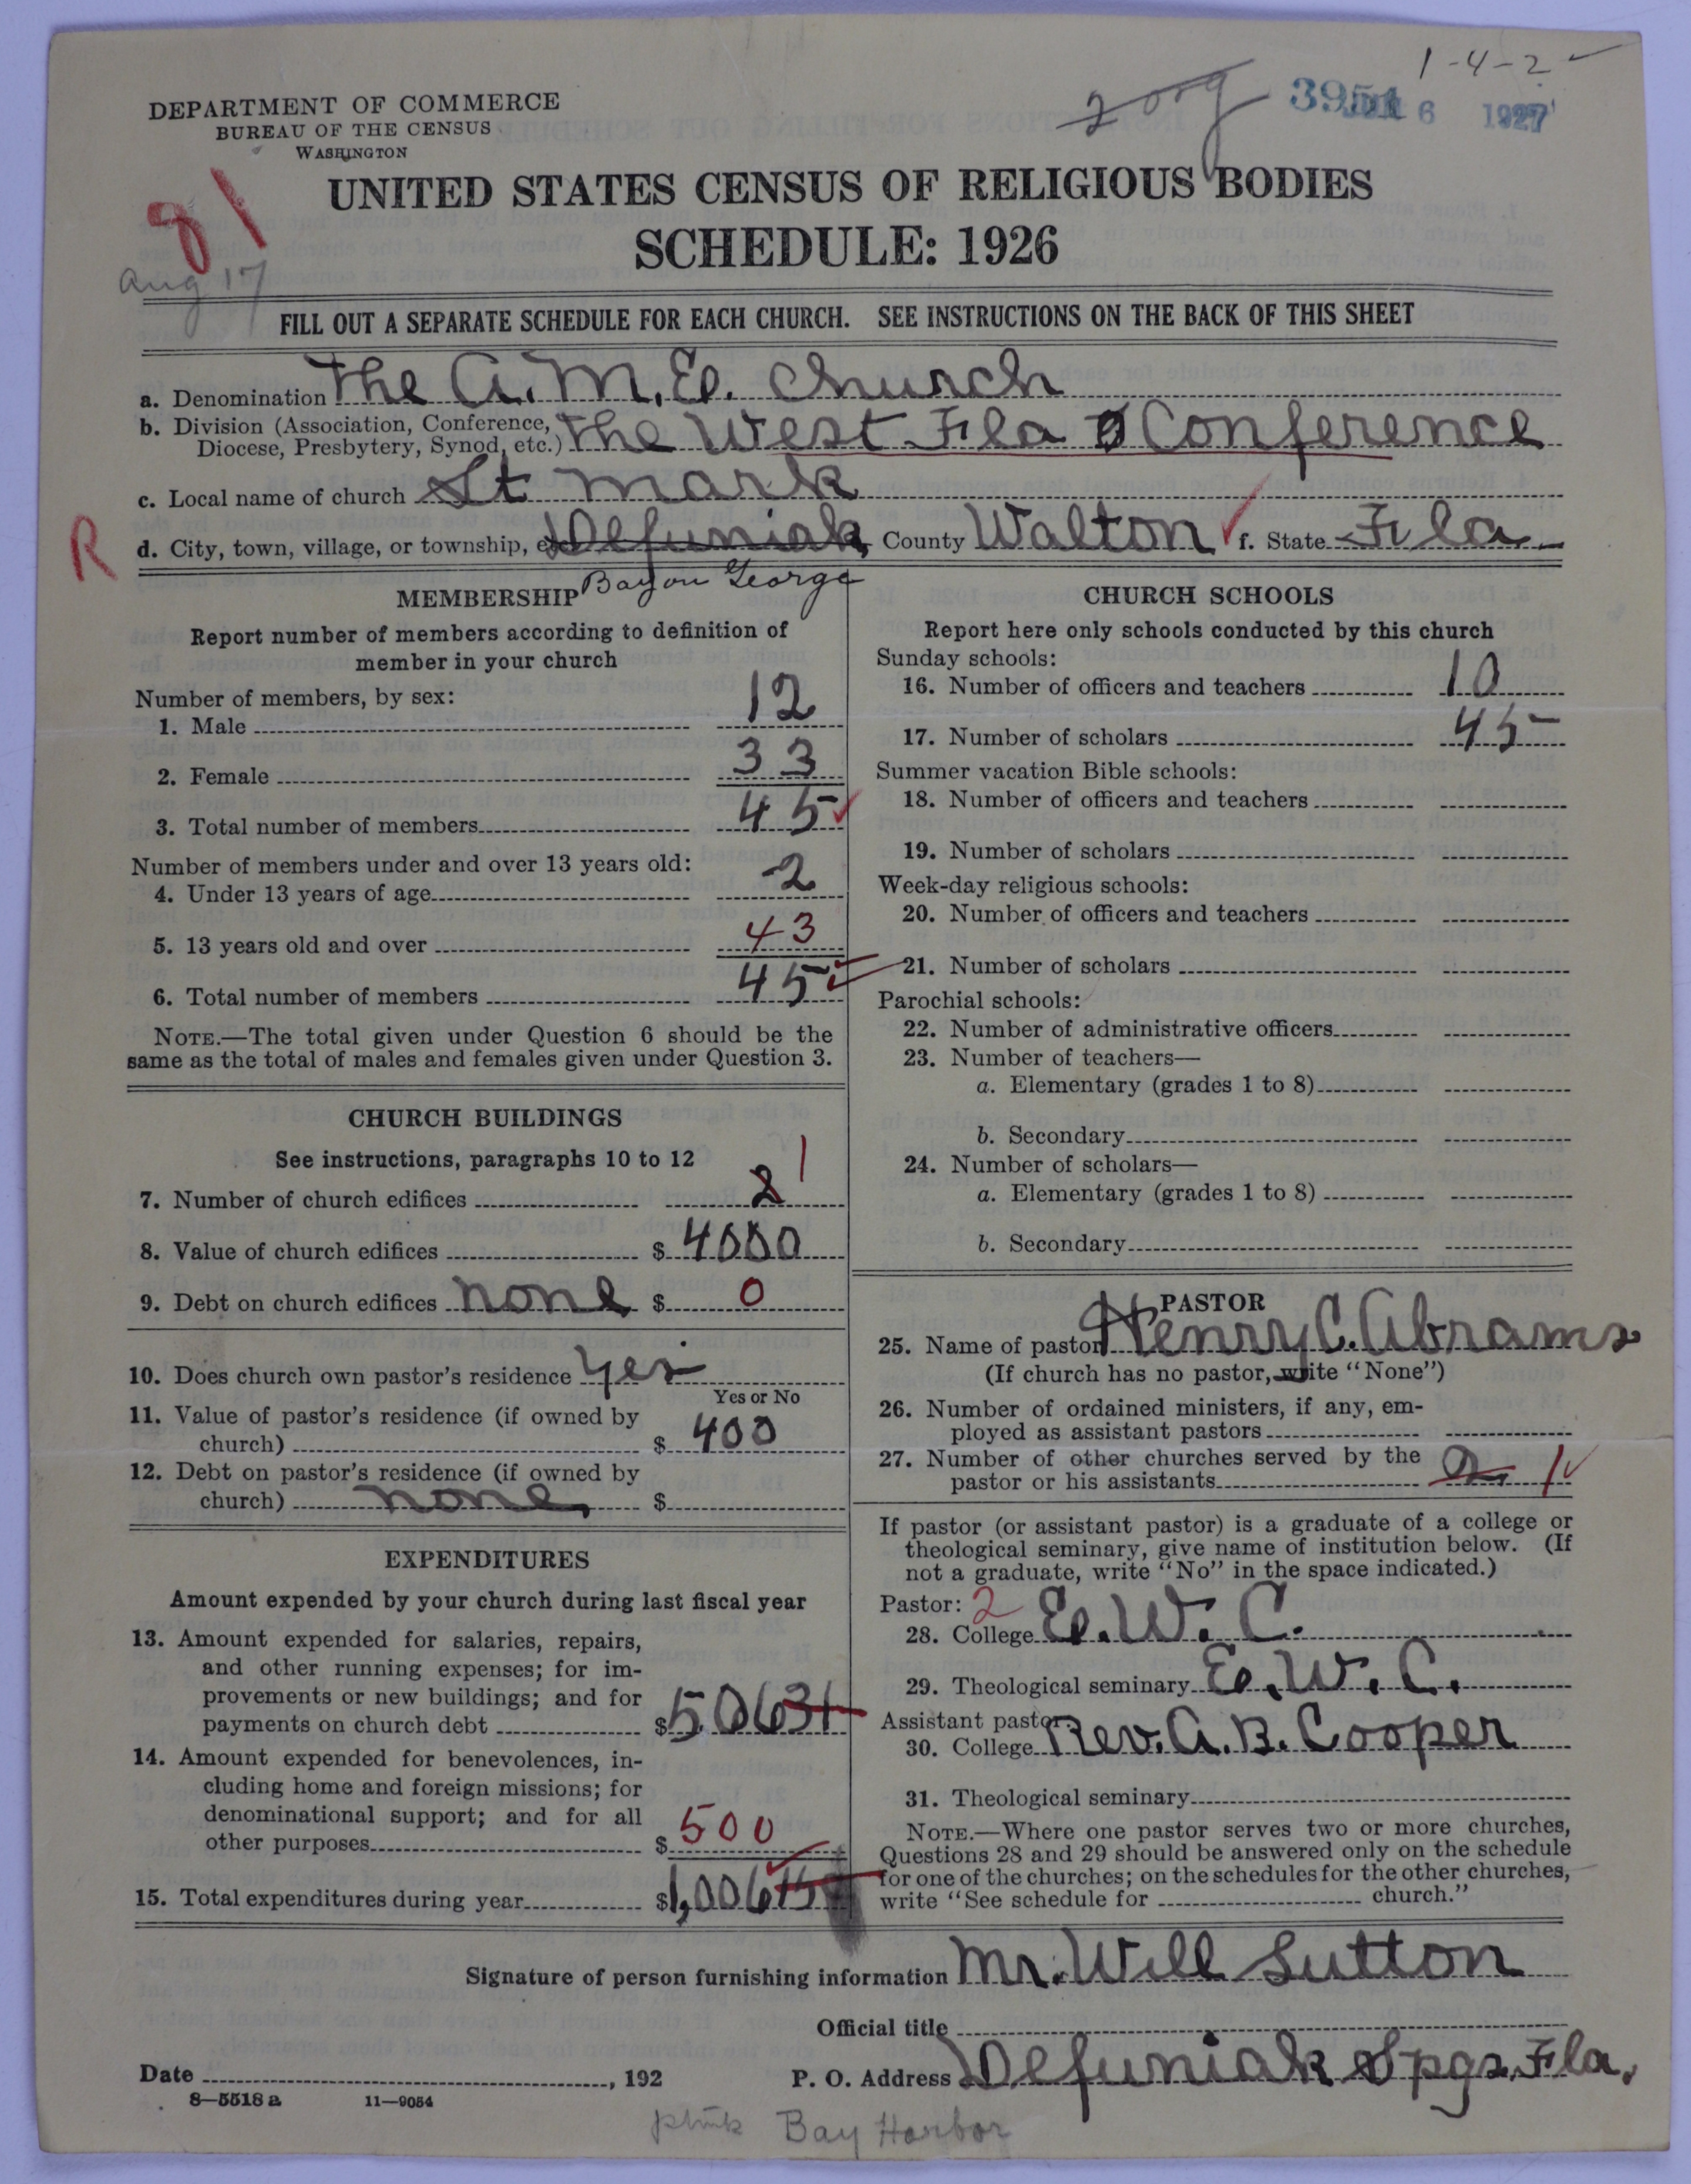 1-4-2
2 org
3951 6 1927
DEPARTMENT OF COMMERCE
BUREAU OF THE CENSUS
WASHINGTON
UNITED STATES CENSUS OF RELIGIOUS BODIES
SCHEDULE: 1926
81
Aug 17
FILL OUT A SEPARATE SCHEDULE FOR EACH CHURCH. SEE INSTRUCTIONS ON THE BACK OF THIS SHEET
a. Denomination The A.M.E. Church
b. Division (Association, Conference, Diocese, Presbytery, Synod, etc.) The West Fla Conference
c. Local name of church St Mark
R
d. City, town, village, or township, etc. Defuniak, County Walton f. State Fla.
Bayou George
MEMBERSHIP
Report number of members according to definition of
member in your church
Number of members, by sex:
1. Male 12
2. Female 33
3. Total number of members 45
Number of members under and over 13 years old:
4. Under 13 years of age 2
5. 13 years old and over 43
6. Total number of members 45
NOTE.—The total given under Question 6 should be the
same as the total of males and females given under Question 3.
CHURCH BUILDINGS
See instructions, paragraphs 10 to 12
7. Number of church edifices 2 1
8. Value of church edifices $ 4000
9. Debt on church edifices none $ 0
10. Does church own pastor's residence Yes
Yes or No
11. Value of pastor's residence (if owned by
church) $ 400
12. Debt on pastor's residence (if owned by
church) none $
EXPENDITURES
Amount expended by your church during last fiscal year
13. Amount expended for salaries, repairs,
and other running expenses; for im-
provements or new buildings; and for
payments on church debt $ 50631
14. Amount expended for benevolences, in-
cluding home and foreign missions; for
denominational support; and for all
other purposes $ 500
15. Total expenditures during year $ 1,00615
CHURCH SCHOOLS
Report here only schools conducted by this church
Sunday schools:
16. Number of officers and teachers 10
17. Number of scholars 45
Summer vacation Bible schools:
18. Number of officers and teachers
19. Number of scholars
Week-day religious schools:
20. Number of officers and teachers
21. Number of scholars
Parochial schools:
22. Number of administrative officers
23. Number of teachers—
a. Elementary (grades 1 to 8)
b. Secondary
24. Number of scholars—
a. Elementary (grades 1 to 8)
b. Secondary
PASTOR
25. Name of pastor Henry C. Abrams
(If church has no pastor, write "None")
26. Number of ordained ministers, if any, em-
ployed as assistant pastors
27. Number of other churches served by the
pastor or his assistants 2 1
If pastor (or assistant pastor) is a graduate of a college or
theological seminary, give name of institution below. (If
not a graduate, write "No" in the space indicated.)
Pastor: 2
28. College E. W. C.
29. Theological seminary E. W. C.
Assistant pastor:
30. College Rev. A. B. Cooper
31. Theological seminary
NOTE.—Where one pastor serves two or more churches,
Questions 28 and 29 should be answered only on the schedule
for one of the churches; on the schedules for the other churches,
write "See schedule for church."
Signature of person furnishing information Mr. Will Sutton
Official title
Date , 192
P. O. Address Defuniak Spgs, Fla.
8—5518 a 11—9054
Bay Harbor